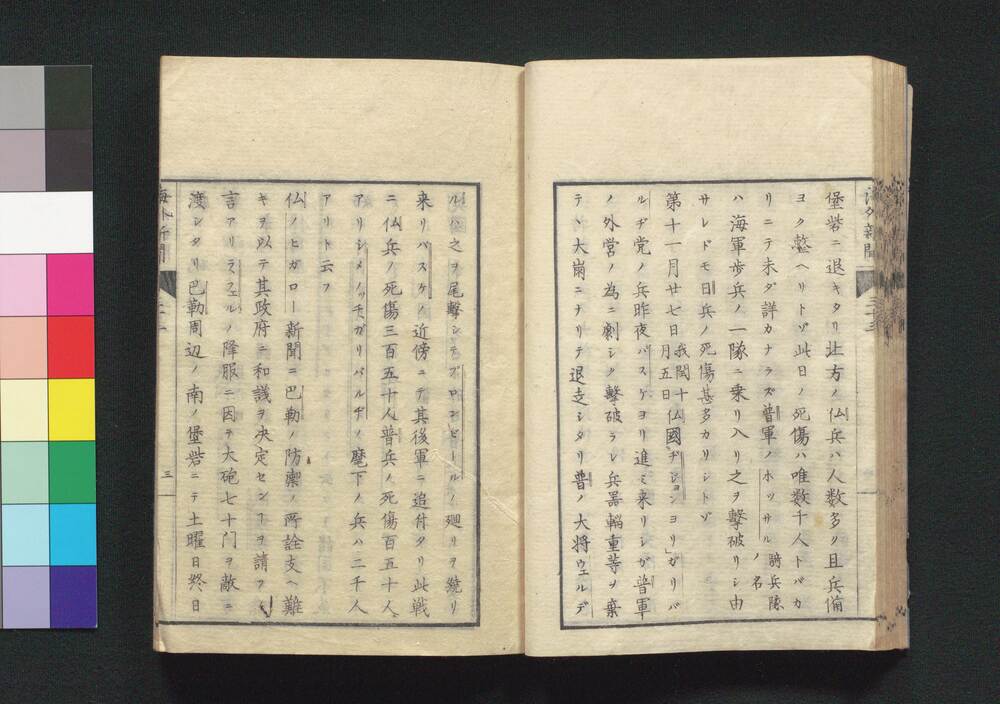 堡砦ニ退キタリ北方ノ仏兵ハ人数多ク且兵備
ヨク整ヘリトゾ此日ノ死傷ハ唯数千人トバカ
リニテ未ダ詳カナラズ普軍ノホッサル騎兵隊ノ名
ハ海軍歩兵ノ一隊ニ乗リ入リ之ヲ撃破リシ由
サレドモ日兵ノ死傷甚多カリシトゾ
第十一月廿七日我閏十月五日仏國ヂションヨリガリバ
ルヂ党ノ兵昨夜バスケヨリ進ミ来リシガ普軍
ノ外営ノ為ニ劇シク撃破ラレ兵器輜重等ヲ棄
テヽ大崩ニナリテ退走シタリ普ノ大将ウェルデ
海外新聞
三
ルハ之ヲ尾撃シテプロンビールノ廻リヲ繞リ
来リバスケノ近傍ニテ其後軍ニ追付タリ此戦
ニ仏兵ノ死傷三百五十人普兵ノ死傷百五十人
アリシメノッチガリバルヂノ麾下ノ兵ハ二千人
アリト云フ
仏ノヒガロー新聞ニ巴勒ノ防禦ノ所詮支ヘ難
キヲ以テ其政府ニ和議ヲ决定センヿヲ請フノ
言アリラフェルノ降服ニ因テ大砲七十門ヲ敵ニ
渡シタリ巴勒周辺ノ南ノ堡砦ニテ土曜日終日
海外新聞
三